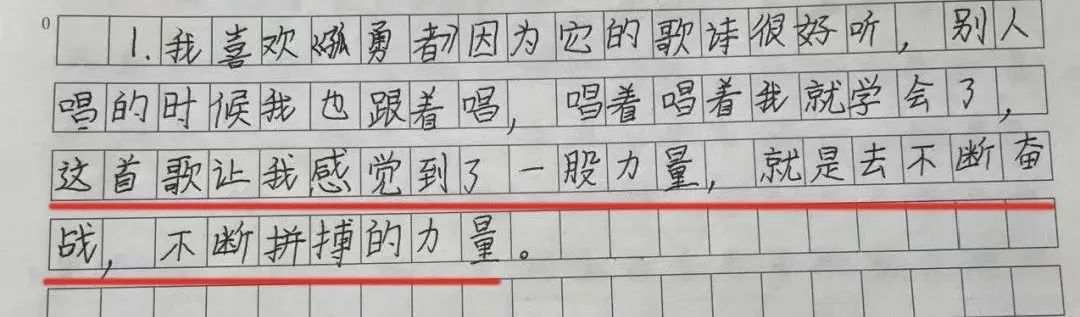 0
1.我喜欢《孤勇者》因为它的歌诗很好听，别人
唱的时候我也跟着唱，唱着唱着我就学会了，
这首歌让我感觉到了一股力量，就是去不断奋
战，不断拼搏的力量。